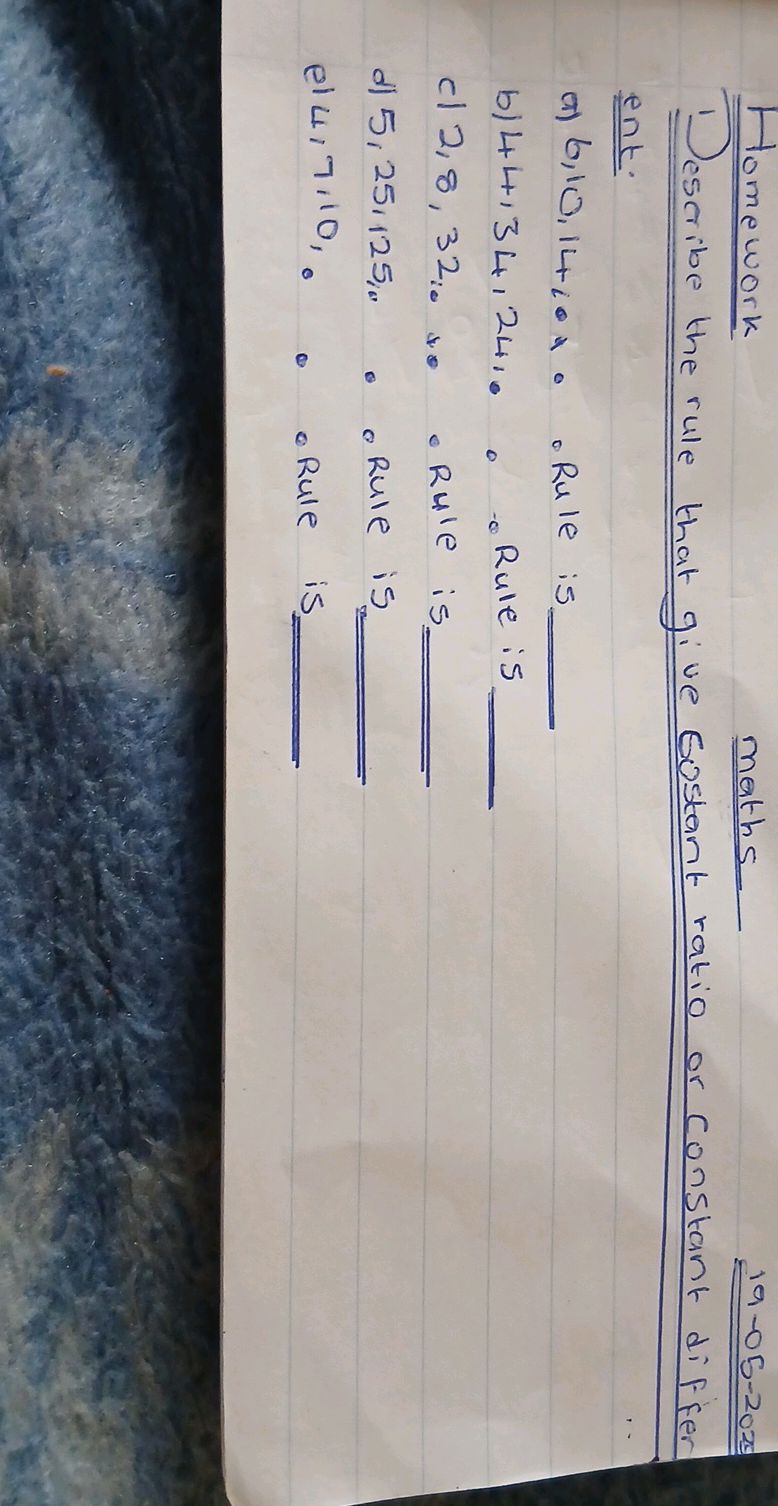 Homework maths 19-05-202
Describe the rule that give Costant ratio or Constant differ
ent.
a) 6,10,14, . . . . Rule is ____
b) 44, 34, 24, . . . Rule is ____
c) 2, 8, 32, . . . Rule is ____
d) 5, 25, 125, . . . Rule is ____
e) 4, 7, 10, . . . Rule is ____